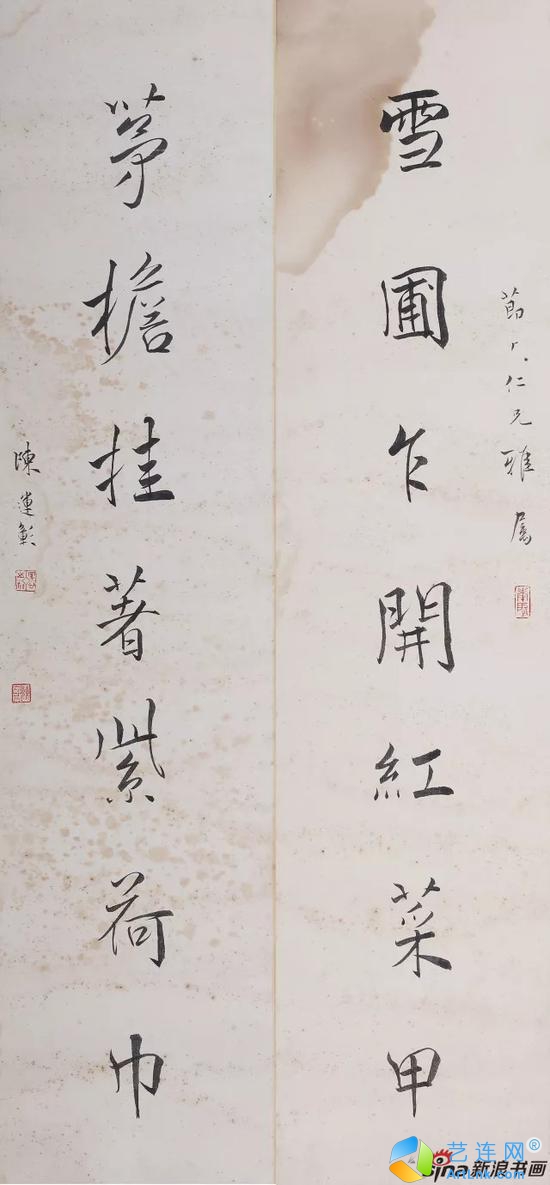 雪圃乍開紅菜甲
仁兄雅屬
茅檐挂著紫荷巾
陳運彰
艺连网®
ArtLnk.com
sina新浪书画